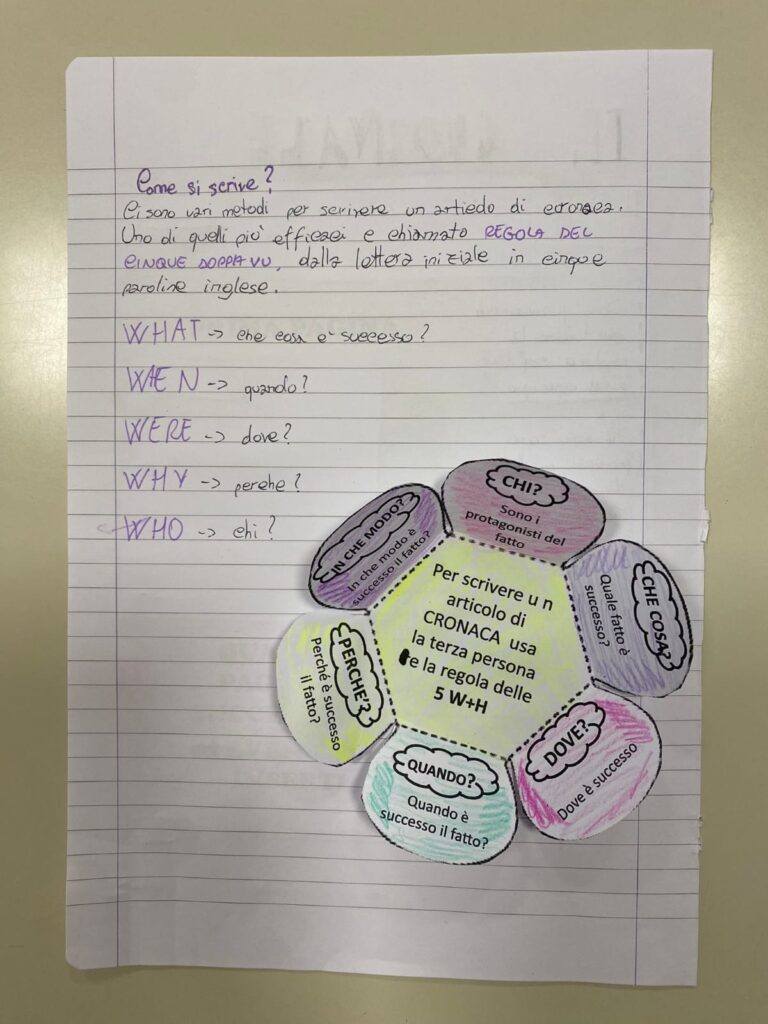 Come si scrive?
Ci sono vari metodi per scrivere un artiedo di cronaca.
Uno di quelli più efficaci e chiamato REGOLA DEL
CINQUE DOPPAVU, dalla lettera iniziale in cinque
paroline inglese.
WHAT -> che cosa e' successo?
WHEN -> quando?
WERE -> dove?
WHY -> perche?
WHO -> chi?
CHI?
Sono i
protagonisti del
fatto
CHE COSA?
Quale fatto è
successo?
DOVE?
Dove è successo
QUANDO?
Quando è
successo il fatto?
PERCHE'?
Perché è successo
il fatto?
IN CHE MODO?
In che modo è
successo il fatto?
Per scrivere u n
articolo di
CRONACA usa
la terza persona
e la regola delle
5 W+H